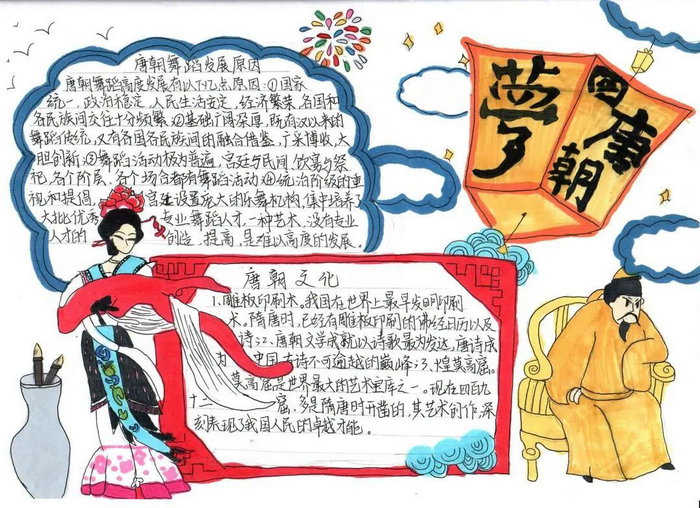 唐朝舞蹈发展原因
唐朝舞蹈高度发展有以下几点原因:①国家
统一,政治稳定,人民生活安定,经济繁荣,各国和
各民族间交往十分频繁②基础广阔深厚,既有汉以来的
舞蹈传统,又有各国各民族间的融合借鉴,广采博收,大
胆创新③舞蹈活动极为普遍,宫廷与民间,饮宴与祭
祀,各个阶层、各个场合都有舞蹈活动④统治阶级的重
视和提倡,宫廷设置庞大的乐舞机构,集中培养了
大批优秀专业舞蹈人才,一种艺术,没有专业
人才的创造、提高,是难以高度的发展。
梦
回唐朝
唐朝文化
1、雕板印刷术。我国在世界上最早发明印刷
术。隋唐时,已经有雕板印刷的佛经日历以及
诗;2、唐朝文学成就以诗歌最为发达,唐诗成
为中国古诗不可逾越的巅峰;3、煌莫高窟。
莫高窟是世界最大的艺术宝库之一。现在四百九
十二窟,多是隋唐时开凿的,其艺术创作,深
刻表现了我国人民的卓越才能。